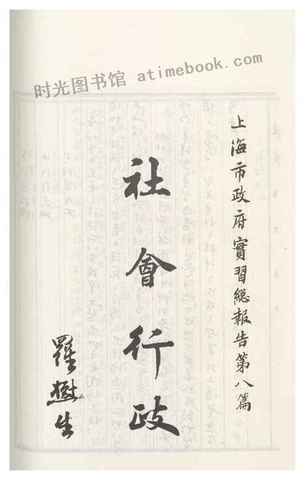 时光图书馆 atimebook.com
上海市政府實習總報告第八篇
社會行政
羅懋生